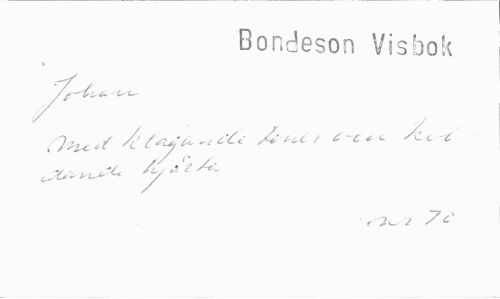 Bondeson Visbok
Johan
Med klagande toner och kvi-
dande hjärta
nr 70